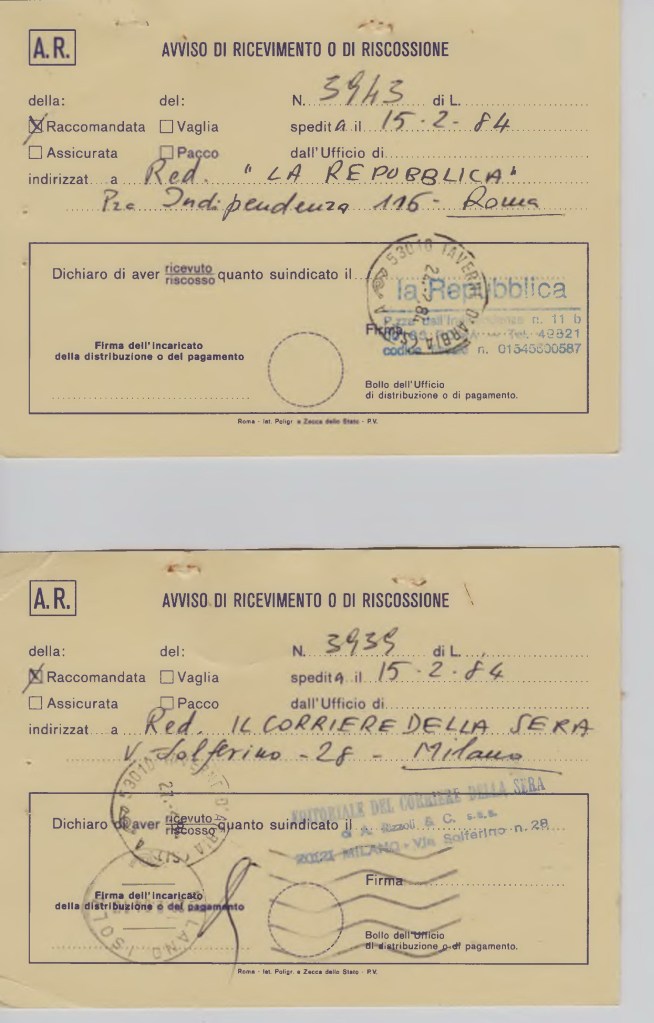 A.R. AVVISO DI RICEVIMENTO O DI RISCOSSIONE
della: del: N. 3943 di L.
Raccomandata Vaglia spedita il 15-2-84
Assicurata Pacco dall'Ufficio di
indirizzat a Red. "LA REPUBBLICA"
Pza Indipendenza 116 - Roma
53010 TAVERNE D'ARBIA
Dichiaro di aver ricevuto riscosso quanto suindicato il
la Repubblica
n. 11 b
Firma
Tel. 49821
Firma dell'incaricato
della distribuzione o del pagamento
n. 01545500587
Bollo dell'Ufficio
di distribuzione o di pagamento.
Roma - Ist. Poligr. e Zecca dello Stato - P.V.
A.R. AVVISO DI RICEVIMENTO O DI RISCOSSIONE
della: del: N. 3939 di L.
Raccomandata Vaglia spedita il 15-2-84
Assicurata Pacco dall'Ufficio di
indirizzat a Red. IL CORRIERE DELLA SERA
V. Solferino - 28 - Milano
53010
EDITORIALE DEL CORRIERE DELLA SERA
Dichiaro di aver ricevuto riscosso quanto suindicato il
di A. Rizzoli & C. s.a.s.
20121 MILANO - Via Solferino n. 28
Firma
Firma dell'incaricato
della distribuzione o del pagamento
Bollo dell'Ufficio
di distribuzione o di pagamento.
Roma - Ist. Poligr. e Zecca dello Stato - P.V.